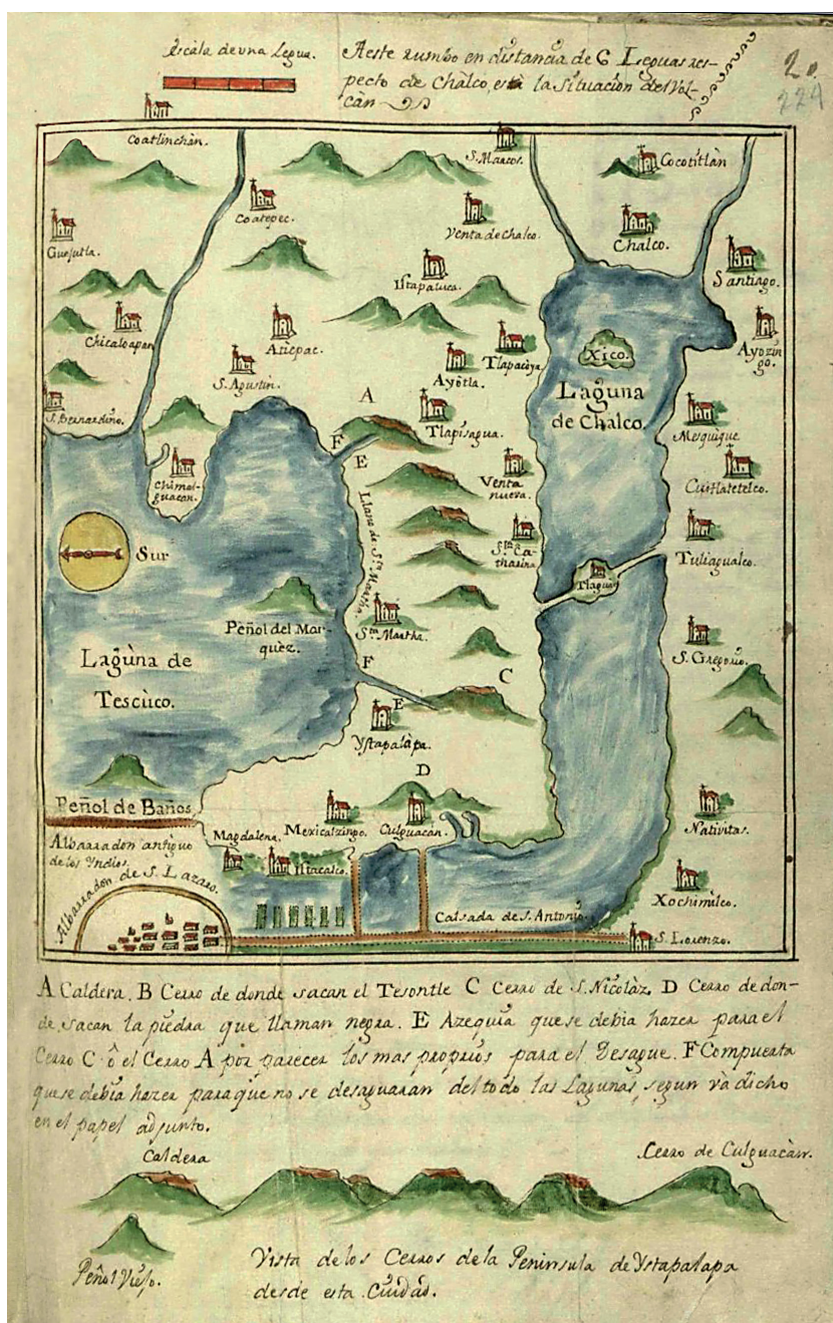 Escala de una Legua.
A este rumbo en distancia de 6 Leguas res-
pecto de Chalco, està la Situacion del Vol-
càn
20.
224
Coatlinchàn.
S. Marcos.
Cocotitlàn
Coatepec.
Venta de Chalco.
Chalco.
Guejutla.
Santiago.
Istapaluca.
Chicaloapan
Aticpac.
Tlapacoya
Xico.
Ayozin
go.
S. Agustin.
Ayotla.
Laguna
de Chalco.
S. Bernardino.
A
Tlapisagua.
Mesquique
F
E
Chimal-
guacan.
Venta
nueva.
Cuitlatetelco.
Llano de Sta. Martha.
Sur
Sta. Ca-
tharina
Tuliagualco.
Tlagua
Peñol del Mar-
quèz.
Sta. Martha.
S. Gregorio.
Laguna de
Tescùco.
F
C
E
Ystapalàpa.
D
Peñol de Baños
Magdalena.
Mexicalzingo.
Culguacàn.
Nativitas.
Albarradon antiguo
de los Yndios.
Istacalco.
Albarradon de S. Lazaro.
Xochimilco.
Calsada de S. Antonio.
S. Lorenzo.
A Caldera. B Cerro de donde sacan el Tesontle C Cerro de S. Nicolàz, D Cerro de don-
de, sacan la piedra que llaman negra. E Azequia que se debia hazer para el
Cerro C ô el Cerro A por parecer los mas proprios para el Desague. F Compuerta
que se debia hazer para que no se desaguaran del todo las Lagunas, segun và dicho
en el papel adjunto.
Caldera
Cerro de Culguacàn.
Peñol Viejo.
Vista de los Cerros de la Peninsula de Ystapalapa
desde esta Ciudàd.